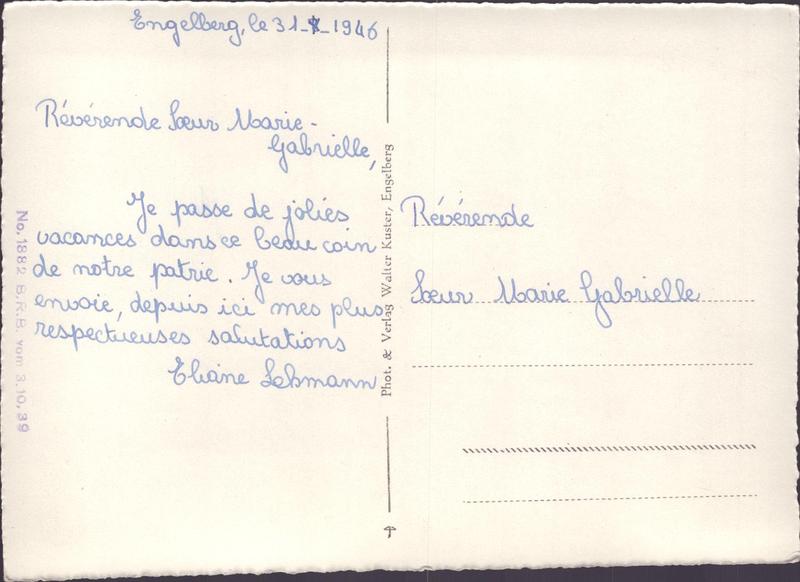 Engelberg, le 31-8-1946
Révérende Sœur Marie-
Gabrielle,
Je passe de jolies
vacances dans ce beau coin
de notre patrie. Je vous
envoie, depuis ici mes plus
respectueuses salutations
Eliane Lehmann
No. 1882 B.R.B. vom 3.10.39
Phot. & Verlag Walter Kuster, Engelberg
Révérende
Sœur Marie Gabrielle